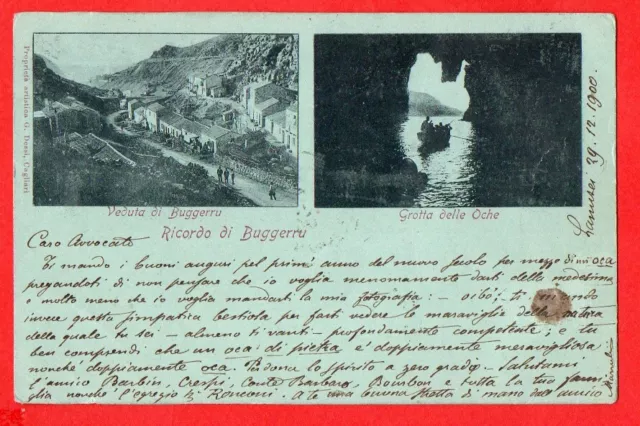 Proprietà artistica G. Dessì, Cagliari
Veduta di Buggerru
Grotta delle Oche
Ricordo di Buggerru
Lanusei 29.12.1900
Caro Avvocato
Ti mando i buoni auguri pel primo anno del nuovo secolo per mezzo di un'oca
pregandoti di non pensare che io voglia menomamente darti della medesima
e molto meno che io voglia mandarti la mia fotografia: - oibó; ti mando
invece questa simpatica bestiola per farti vedere le maraviglie della natura
della quale tu sei - almeno ti vanti - profondamente competente; e tu
ben comprendi che un oca di pietra è doppiamente meravigliosa
nonchè doppiamente oca. Perdona lo spirito a zero gradi. Salutami
l'amico Barbin, Crespi, Conte Barbaro, Bourbon e tutta la tua fami
glia nonche l'egregio Ronconi. A te una buona stretta di mano dall'amico